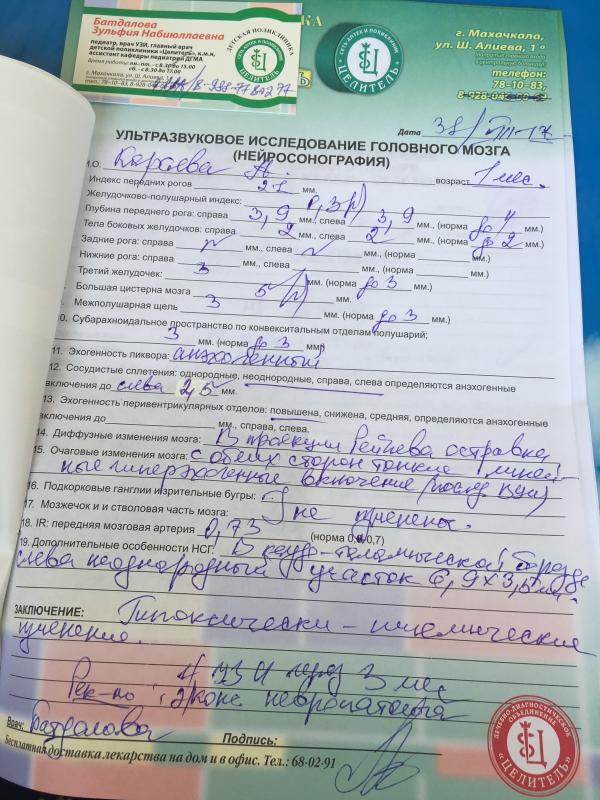 Батдалова
Зульфия Набиюллаевна
педиатр, врач УЗИ, главный врач
детской поликлиники «Целитель», к.м.н.
ассистент кафедры педиатрии ДГМА
Время работы: пн. - пт. - с 8.30 до 15.00
сб. - с 8.30 до
г. Махачкала, ул. Ш. Алиева,
ДЕТСКАЯ ПОЛИКЛИНИКА
ЦЕЛИТЕЛЬ
СЕТЬ АПТЕК И ПОЛИКЛИНИК
ЦЕЛИТЕЛЬ
г. Махачкала,
ул. Ш. Алиева, 1
телефон:
78-10-83,
Дата
УЛЬТРАЗВУКОВОЕ ИССЛЕДОВАНИЕ ГОЛОВНОГО МОЗГА
(НЕЙРОСОНОГРАФИЯ)
.О. Караева А. возраст 1 мес.
Индекс передних рогов мм.
Желудочково-полушарный индекс:
Глубина переднего рога: справа 3,9 мм., слева 3,9 мм., (норма до 4 мм.)
Тела боковых желудочков: справа 2 мм., слева 2 мм., (норма до 2 мм.)
Задние рога: справа мм., слева мм., (норма мм.)
Нижние рога: справа мм., слева мм., (норма мм.)
Третий желудочек: 3 мм. (норма до 3 мм.)
Большая цистерна мозга 5 мм.
Межполушарная щель 3 мм. (норма до 3 мм.)
0. Субарахноидальное пространство по конвекситальным отделам полушарий;
3 мм. (норма до 3 мм.)
11. Эхогенность ликвора: анэхогенный
12. Сосудистые сплетения: однородные, неоднородные, справа, слева определяются анэхогенные
включения до слева 2,5 мм.
13. Эхогенность перивентрикулярных отделов: повышена, снижена, средняя, определяются анэхогенные
включения до мм., справа, слева.
14. Диффузные изменения мозга: В проекции Рейлева островка
15. Очаговые изменения мозга: с обеих сторон тонкие линей
ные гиперэхогенные включения (сосуд
16. Подкорковые ганглии и зрительные бугры:
17. Мозжечок и и стволовая часть мозга: не изменены.
18. IR: передняя мозговая артерия 0,73 (норма 0,7)
19. Дополнительные особенности НСГ: В каудо-таламической борозде
слева неоднородный участок 6,9 х 3,5 мм.
ЗАКЛЮЧЕНИЕ: Гипоксически-ишемические
изменения.
Рек-но: 1) УЗИ через 3 мес
2) конс невропатолога
Врач: Батдалова Подпись:
Бесплатная доставка лекарства на дом и в офис. Тел.: 68-02-91
ЛЕЧЕБНО-ДИАГНОСТИЧЕСКОЕ ОБЪЕДИНЕНИЕ
"ЦЕЛИТЕЛЬ"